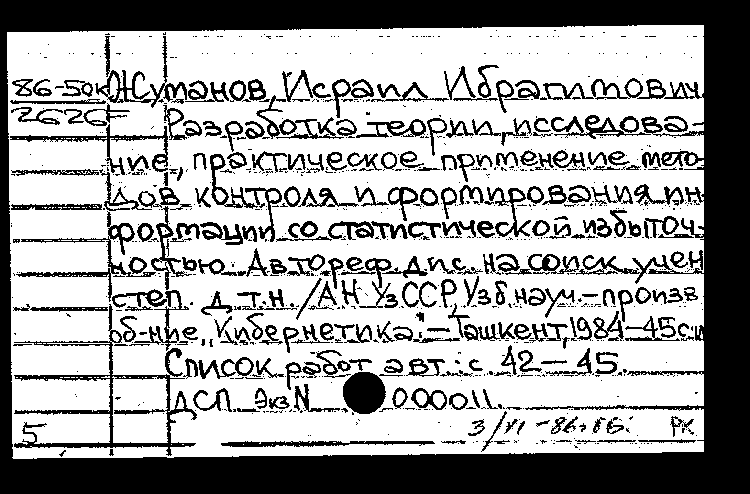 86-50к Жуманов, Исраил Ибрагимович.
2626 Разработка теории, исследова-
ние, практическое применение мето-
дов контроля и формирования ин-
формации со статистической избыточ-
ностью. Автореф. дис. на соиск. учен
степ. д.т.н. / АН УзССР, Узб. науч.-произв
об-ние "Кибернетика". - Ташкент, 1984 - 45с.
Список работ авт.: с. 42 - 45.
ДСП Экз N 000011.
5 РК